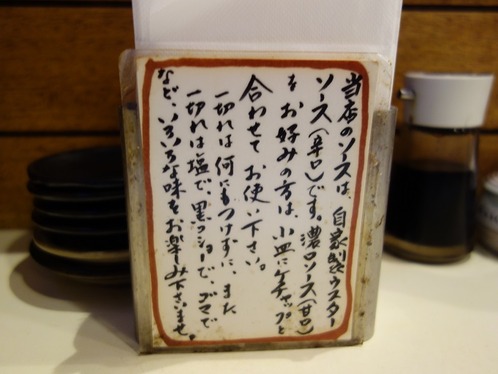 当店のソースは、自家製ウスター
ソース(辛口)です。濃口ソース(甘口)
をお好みの方は、小皿にケチャップと
合わせてお使い下さい。
一切れは何もつけずに、また
一切れは塩で、黒コショーで、ゴマで
など、いろいろな味をお楽しみ下さいませ。